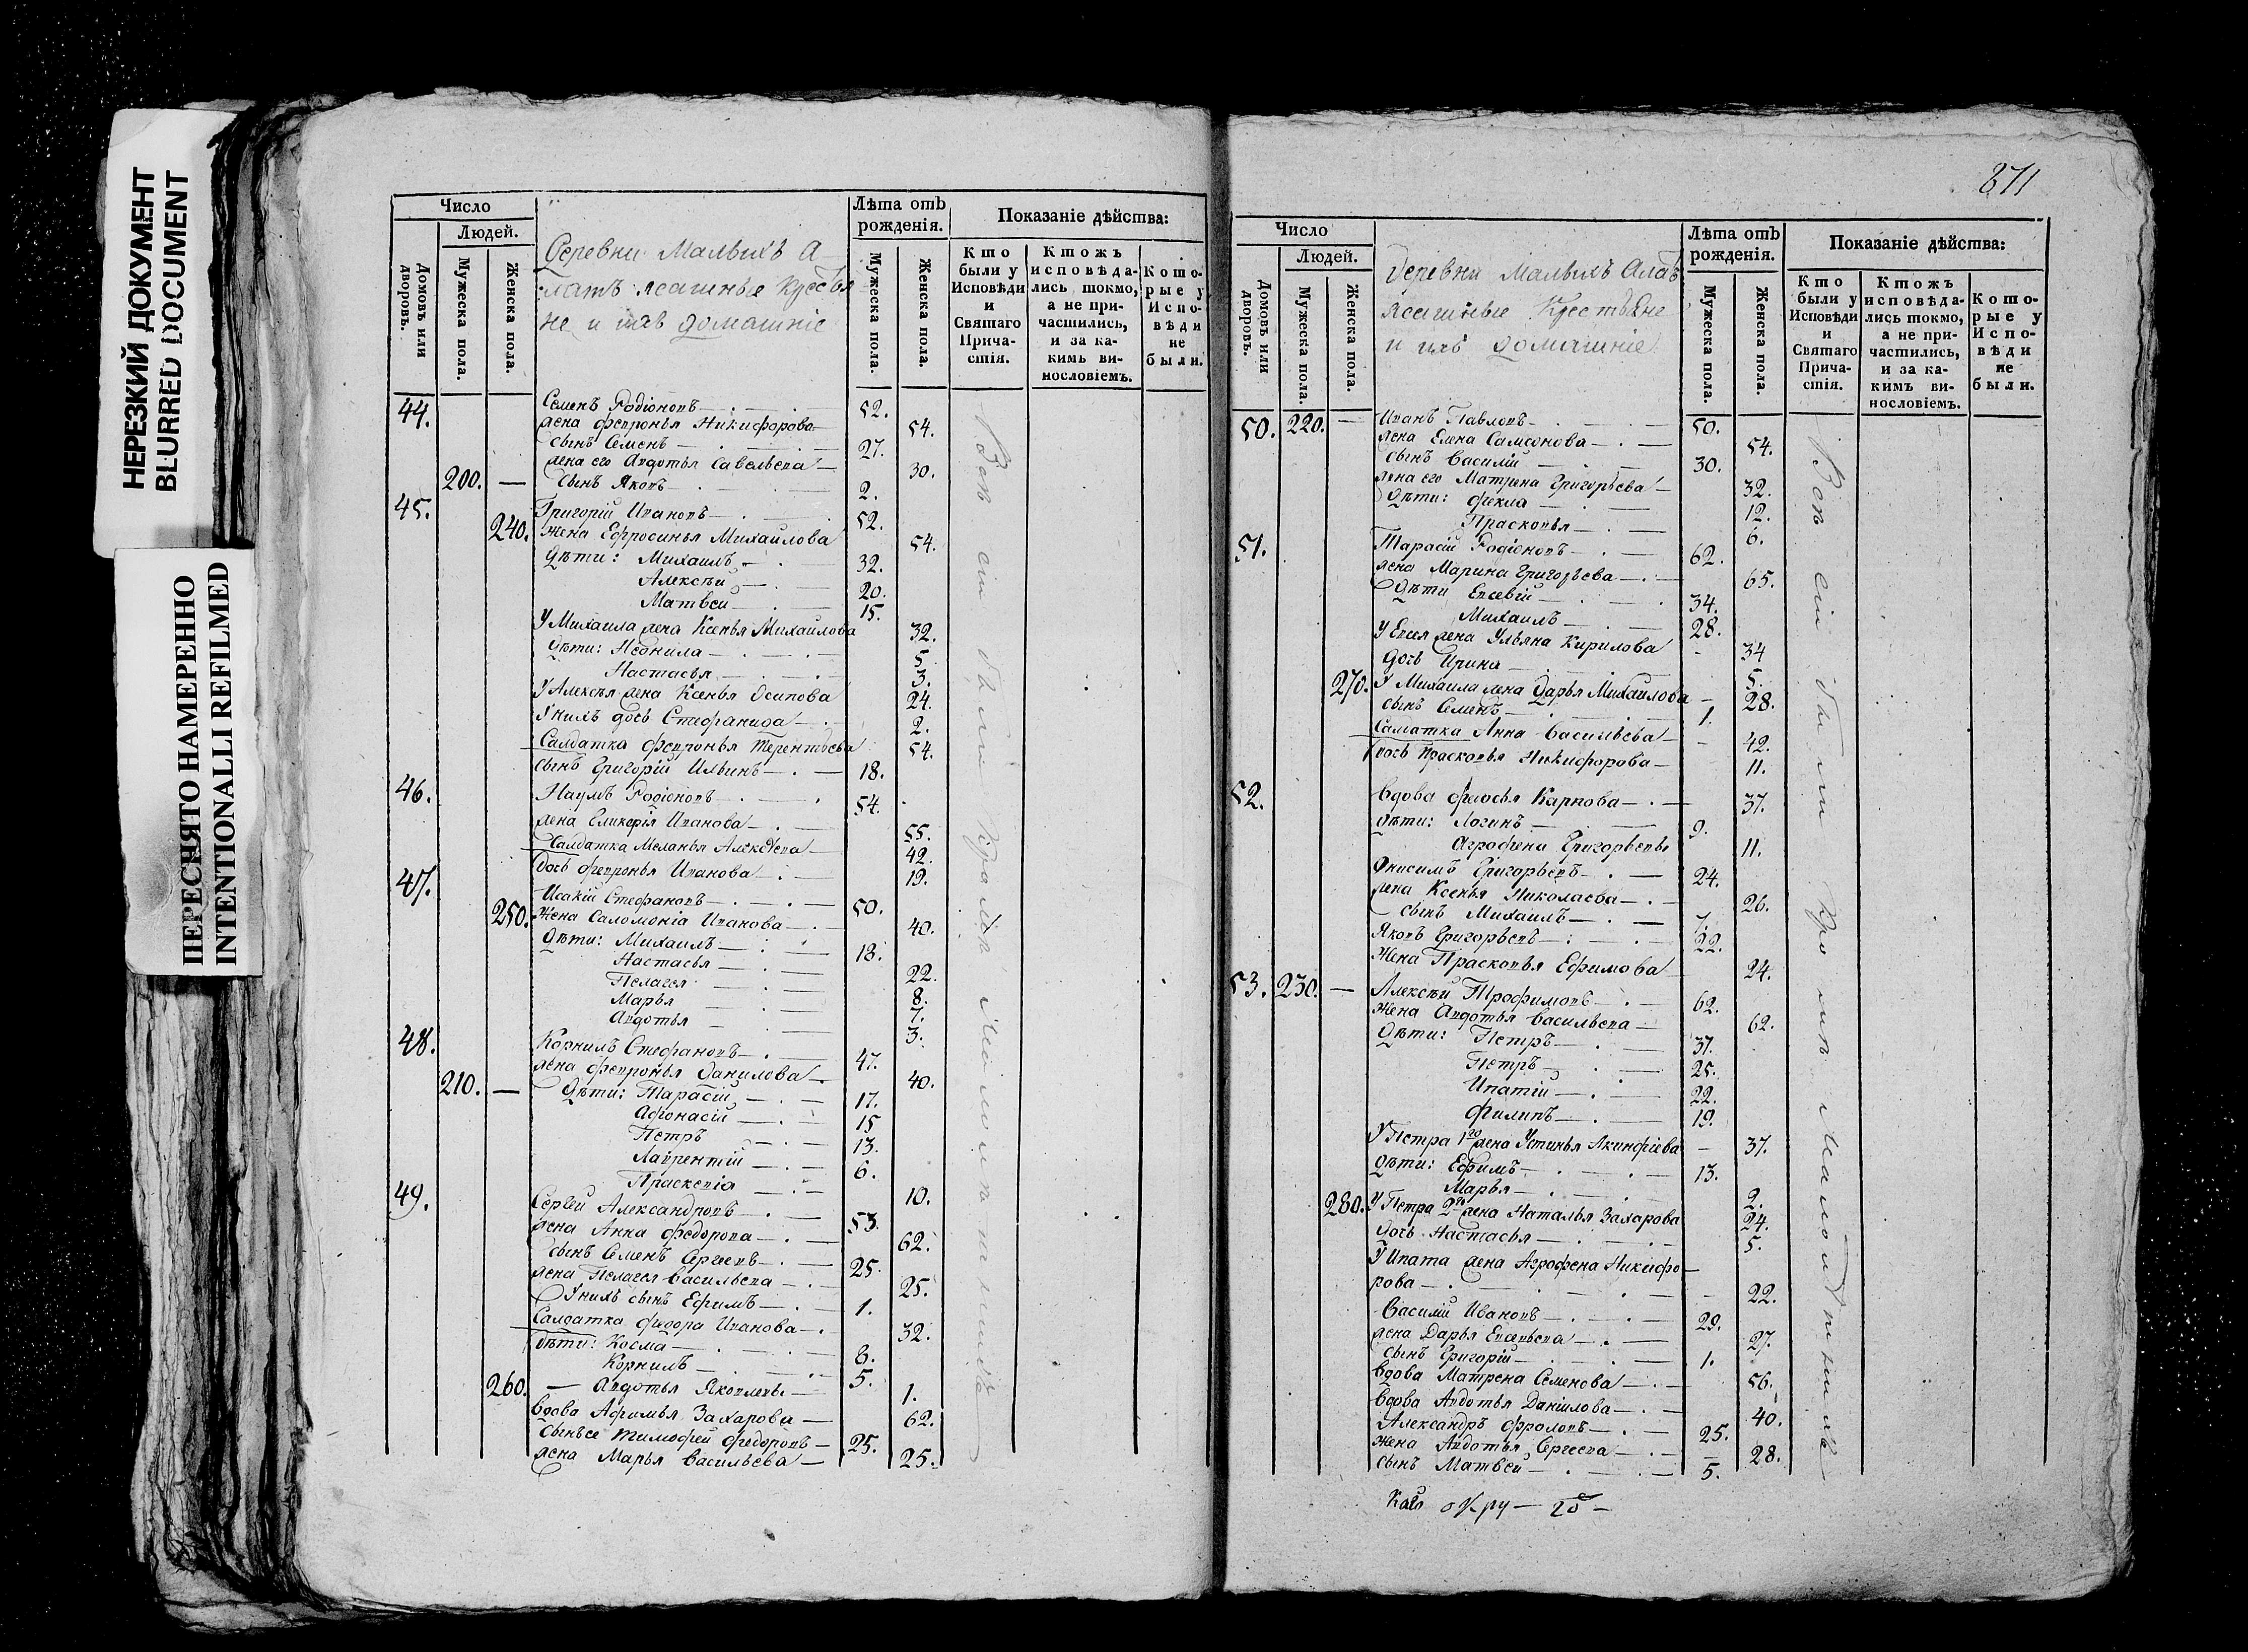 НЕРЕЗКИЙ ДОКУМЕНТ
BLURRED DOCUMENT
ПЕРЕСНЯТО НАМЕРЕННО
INTENTIONALLI REFILMED
Число
Людей.
Домовъ или дворовъ.
Мужеска пола.
Женска пола.
Деревни Малыхъ А-
латъ ясашные Крестья
не и ихъ домашніе
Лѣта отъ рожденія.
Мужеска пола.
Женска пола.
Показаніе дѣйства:
Кто были у Исповѣди и Святаго Причастія.
Ктожъ исповѣдались токмо, а не причастились, и за какимъ винословіемъ.
Которые у Исповѣди не были.
44. Семенъ Родіоновъ 52.
жена Февронья Никифорова 54.
сынъ Семенъ 27.
жена его Авдотья Савельева 30.
200. — сынъ Яковъ 2.
45. Григорій Ивановъ 52.
240. жена Ефросинья Михайлова 54.
Дѣти: Михаилъ 32.
Алексѣй 20.
Матвей 15.
У Михаила жена Ксенья Михайлова 32.
дѣти: Неонила 5
Настасья 3.
У Алексѣя жена Ксенья Осипова 24.
У нихъ дочь Стефанида 2.
Салдатка Февронья Терентьева 54.
сынъ Григорій Ильинъ 18.
46. Наумъ Родіоновъ 54.
жена Гликерія Иванова 55.
Салдатка Меланья Алексѣева 42.
дочь Февронья Иванова 19.
47. Исакій Стефановъ 50.
250. Жена Саломонія Иванова 40.
Дѣти: Михаилъ 13.
Настасья 22.
Пелагея 8.
Марья 7.
Авдотья 3.
48. Корнилъ Стефановъ 47.
жена Февронья Данилова 40.
210. — Дѣти: Тарасій 17.
Афонасій 15
Петръ 13.
Лаврентій 6.
Праскевія 10.
49. Сергѣй Александровъ 53.
жена Анна Федорова 62.
сынъ Семенъ Сергеевъ 25.
жена Пелагея Васильева 25.
У нихъ сынъ Ефимъ 1.
Салдатка Федора Иванова 32.
дѣти: Косма 8.
Корнилъ 5.
260. — Авдотья Яковлевы 1.
вдова Афимья Захарова 62.
сынъ ее Тимофей Федоровъ 25.
жена Марья Васильева 25.
Всѣ сіи были кромѣ малолѣтнихъ
871
Число
Людей.
Домовъ или дворовъ.
Мужеска пола.
Женска пола.
Деревни Малыхъ Алатъ
ясашные Крестьяне
и ихъ домашніе
Лѣта отъ рожденія.
Мужеска пола.
Женска пола.
Показаніе дѣйства:
Кто были у Исповѣди и Святаго Причастія.
Ктожъ исповѣдались токмо, а не причастились, и за какимъ винословіемъ.
Которые у Исповѣди не были.
50. 220. — Иванъ Павловъ 50.
жена Елена Самсонова 54.
сынъ Василій 30.
жена его Матрена Григорьева 32.
Дѣти: Фекла 12.
Прасковья 6.
51. Тарасій Родіоновъ 62.
жена Марина Григорьева 65.
Дѣти Евсевій 34.
Михаилъ 28.
У Евсея жена Ульяна Кирилова 34
дочь Ирина 5.
270. У Михаила жена Дарья Михайлова 28.
сынъ Семенъ 1.
Салдатка Анна Васильева 42.
дочь Прасковья Никифорова 11.
52. вдова Федосья Карпова 37.
Дѣти: Логинъ 9.
Агрофена Григорьевы 11.
Онисимъ Григорьевъ 24.
жена Ксенья Николаева 26.
сынъ Михаилъ
Яковъ Григорьевъ 22.
Жена Прасковья Ефимова 24.
53. 230. — Алексѣй Трофимовъ 62.
жена Авдотья Васильева 62.
Дѣти: Петръ 37.
Петръ 25.
Ипатій 22.
Филипъ 19.
У Петра 1го жена Устинья Акинфіева 37.
Дѣти: Ефимъ 13.
Марья 2.
280. У Петра 2го жена Наталья Захарова 24.
дочь Настасья 5.
У Ипата жена Агрофена Никифо
рова 22.
Василій Ивановъ 29.
жена Дарья Евсевьева 27.
сынъ Григорій 1.
вдова Матрена Семенова 56.
вдова Авдотья Данилова 40.
Александръ Фроловъ 25.
жена Авдотья Сергеева 28.
сынъ Матвей 5.
Всѣ сіи были кромѣ малолѣтнихъ